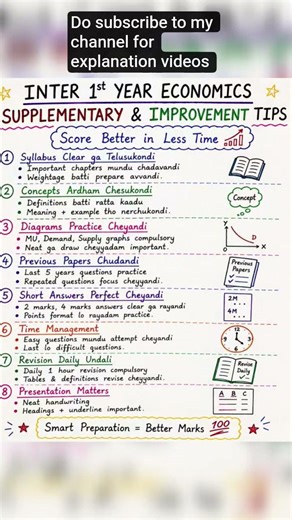 Do subscribe to my
channel for
explanation videos
INTER 1st YEAR ECONOMICS
SUPPLEMENTARY & IMPROVEMENT TIPS
Score Better in Less Time
1 Syllabus Clear ga Telusukondi
• Important chapters mundu chadavandi
• Weightage batti prepare avvandi.
2 Concepts Ardham Chesukondi
• Definitions batti ratta kaadu
• Meaning + example tho nerchukondi.
Concept
3 Diagrams Practice Cheyandi
• MU, Demand, Supply graphs compulsory
• Neat ga draw cheyyadam important.
Y
D
X
4 Previous Papers Chudandi
• Last 5 years questions practice
• Repeated questions focus cheyyandi.
Previous
Papers
5 Short Answers Perfect Cheyandi
• 2 marks, 4 marks answers clear ga rayandi
• Points format lo rayadam practice.
2M
4M
6 Time Management
• Easy questions mundu attempt cheyandi
• Last lo difficult questions.
12
3
6
9
7 Revision Daily Undali
• Daily 1 hour revision compulsory
• Tables & definitions revise cheyyandi.
Revise
Daily
8 Presentation Matters
• Neat handwriting
• Headings + underline important.
A B C
Smart Preparation = Better Marks 100